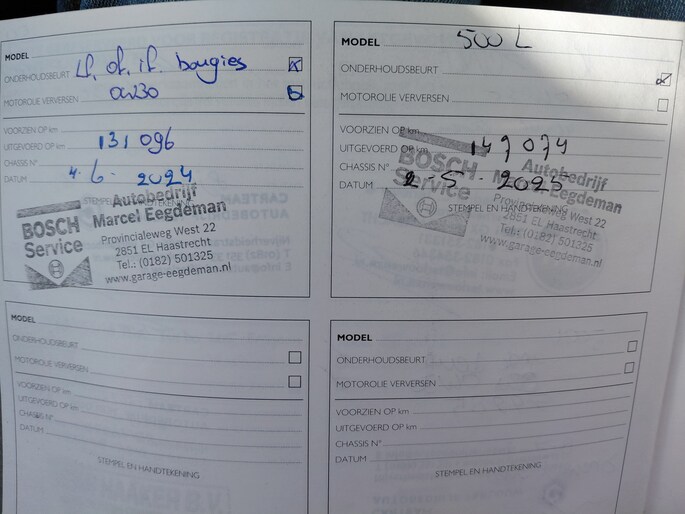 MODEL
ONDERHOUDSBEURT Lf, of, if, bougies
MOTOROLIE VERVERSEN 0W30
VOORZIEN OP km
UITGEVOERD OP km 131 096
CHASSIS N°
DATUM 4-6-2024
STEMPEL EN HANDTEKENING
BOSCH
Service
Autobedrijf
Marcel Eegdeman
Provincialeweg West 22
2851 EL Haastrecht
Tel.: (0182) 501325
www.garage-eegdeman.nl
MODEL 500 L
ONDERHOUDSBEURT
MOTOROLIE VERVERSEN
VOORZIEN OP km
UITGEVOERD OP km 147 074
CHASSIS N°
DATUM 2-5-2025
STEMPEL EN HANDTEKENING
BOSCH
Service
Autobedrijf
Marcel Eegdeman
Provincialeweg West 22
2851 EL Haastrecht
Tel.: (0182) 501325
www.garage-eegdeman.nl
MODEL
ONDERHOUDSBEURT
MOTOROLIE VERVERSEN
VOORZIEN OP km
UITGEVOERD OP km
CHASSIS N°
DATUM
STEMPEL EN HANDTEKENING
MODEL
ONDERHOUDSBEURT
MOTOROLIE VERVERSEN
VOORZIEN OP km
UITGEVOERD OP km
CHASSIS N°
DATUM
STEMPEL EN HANDTEKENING